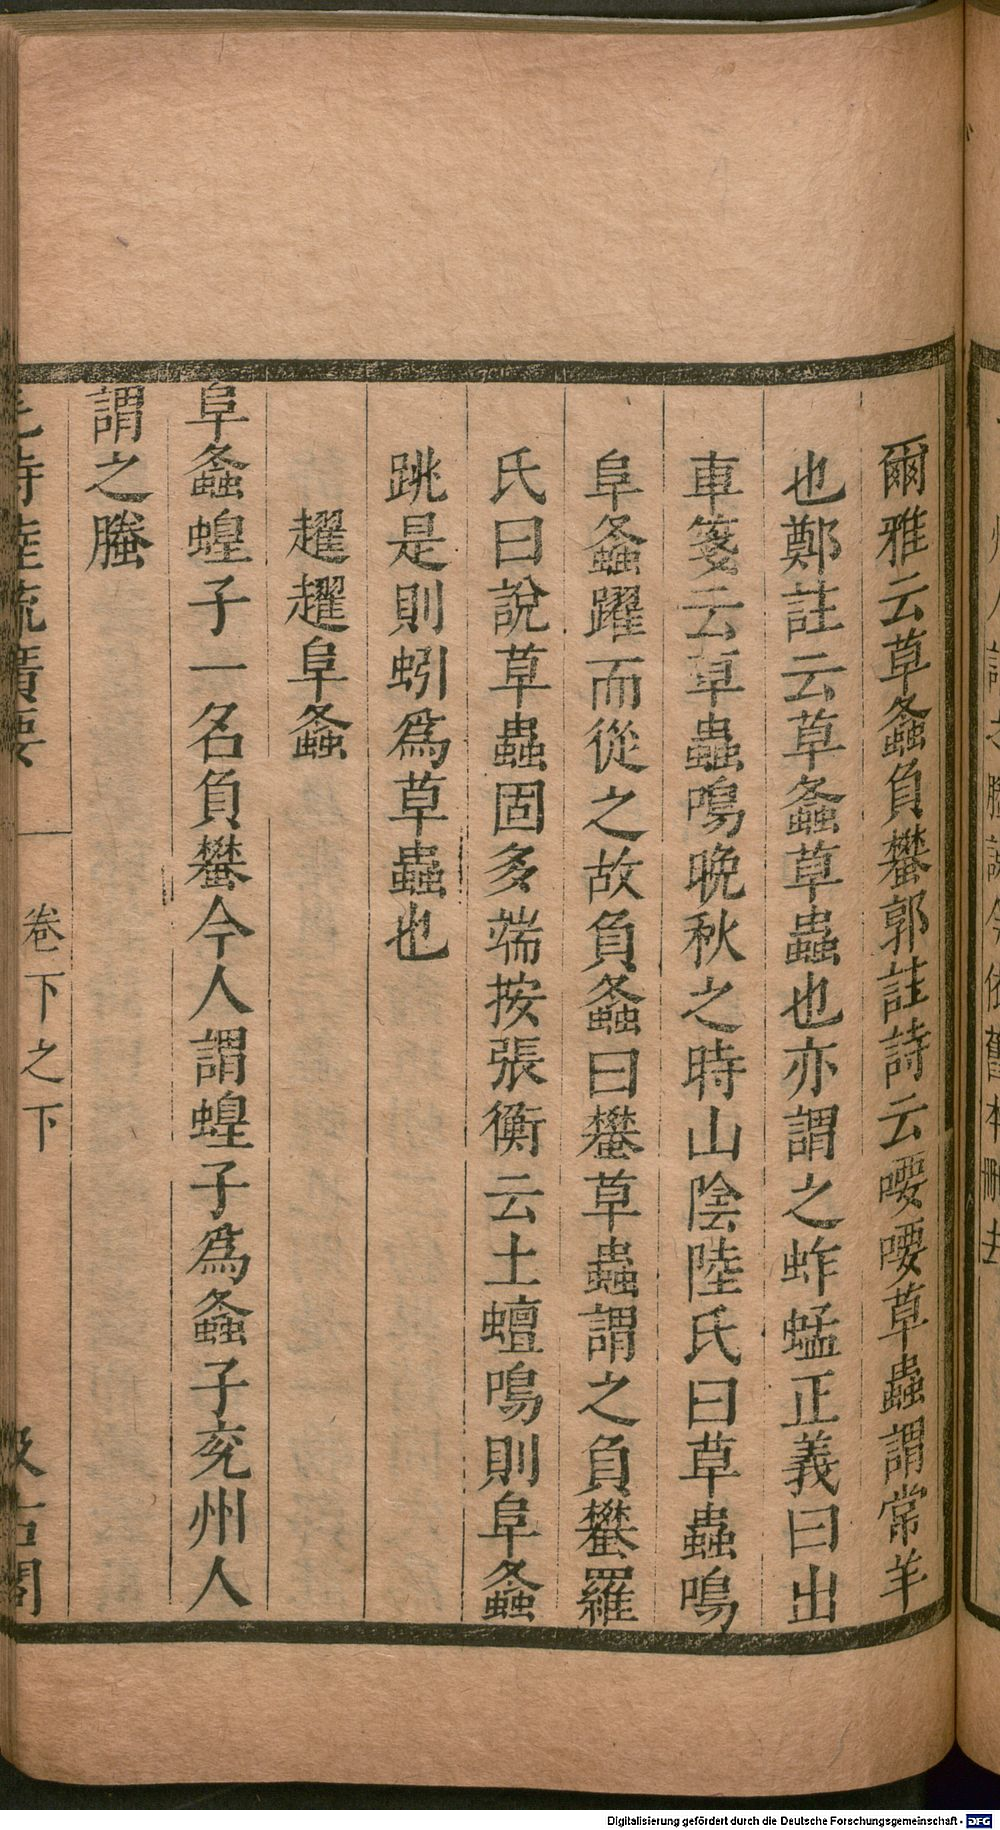 爾雅云草螽負蠜郭註詩云喓喓草蟲謂常羊
也鄭註云草螽草蟲也亦謂之蚱蜢正義曰出
車箋云草蟲鳴晚秋之時山陰陸氏曰草蟲鳴
阜螽躍而從之故負螽曰蠜草蟲謂之負蠜羅
氏曰說草蟲固多端按張衡云土蟺鳴則阜螽
跳是則蚓爲草蟲也
趯趯阜螽
阜螽蝗子一名負蠜今人謂蝗子爲螽子兖州人
謂之螣
毛詩陸疏廣要
卷下之下
汲古閣
Digitalisierung gefördert durch die Deutsche Forschungsgemeinschaft - DFG